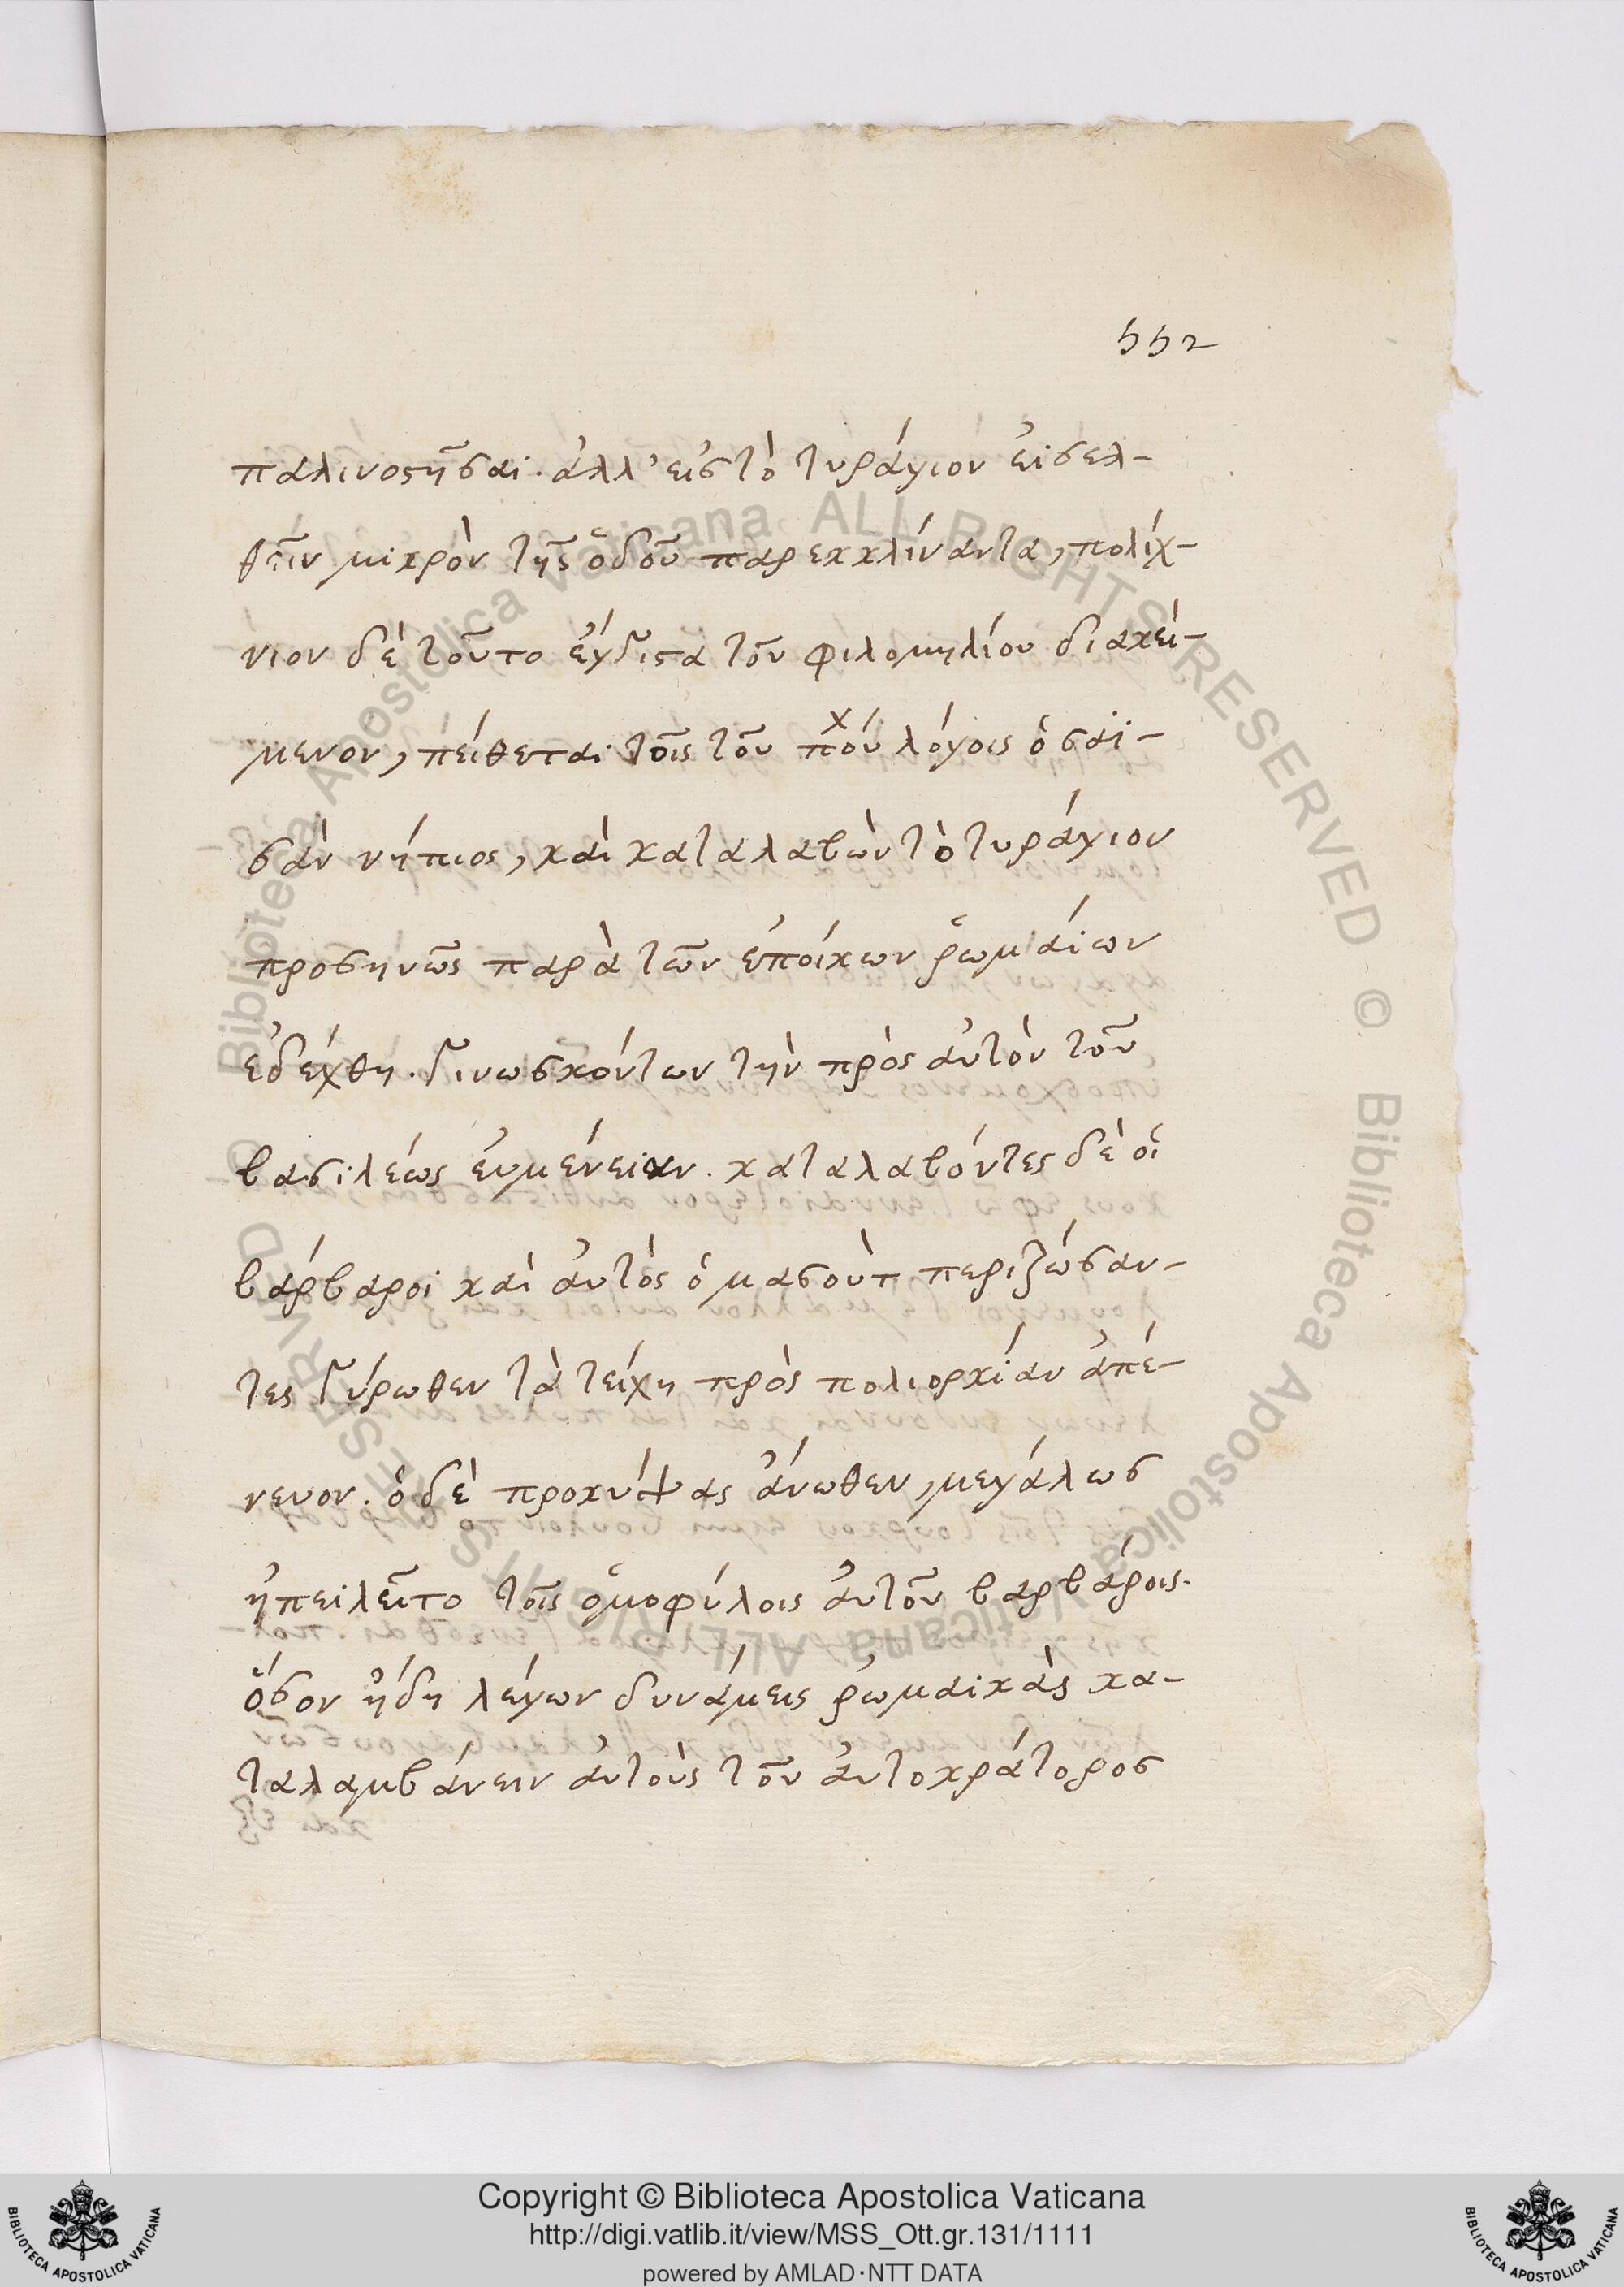 552
παλινοστῆσαι. ἀλλ' εἰς τὸ τυράγιον εἰσελ-
θεῖν μικρὸν τῆς ὁδοῦ παρεκκλίναντα, πολίχ-
νιον δὲ τοῦτο ἔγγιστα τοῦ φιλομηλίου διακεί-
μενον, πείθεται τοῖς τοῦ πχού λόγοις ὁ σαϊ-
σὰν νήπιος, καὶ καταλαβὼν τὸ τυράγιον
προσηνῶς παρὰ τῶν ἐποίκων ῥωμαίων
ἐδέχθη. γινωσκόντων τὴν πρὸς αὐτὸν τοῦ
βασιλέως εὐμένειαν. καταλαβόντες δὲ οἱ
βάρβαροι καὶ αὐτὸς ὁ μασοὺτ περιζώσαν-
τες γύρωθεν τὰ τείχη πρὸς πολιορκίαν ἀπέ-
νευον. ὁ δὲ προκύψας ἄνωθεν, μεγάλως
ἠπειλεῖτο τοῖς ὁμοφύλοις αὐτοῦ βαρβάροις.
ὅσον ἤδη λέγων δυνάμεις ῥωμαϊκὰς κα-
ταλαμβάνειν αὐτοὺς τοῦ αὐτοκράτορος
Biblioteca Apostolica Vaticana ALL RIGHTS RESERVED ©
Copyright © Biblioteca Apostolica Vaticana
http://digi.vatlib.it/view/MSS_Ott.gr.131/1111
powered by AMLAD·NTT DATA
BIBLIOTECA APOSTOLICA VATICANA
BIBLIOTECA APOSTOLICA VATICANA